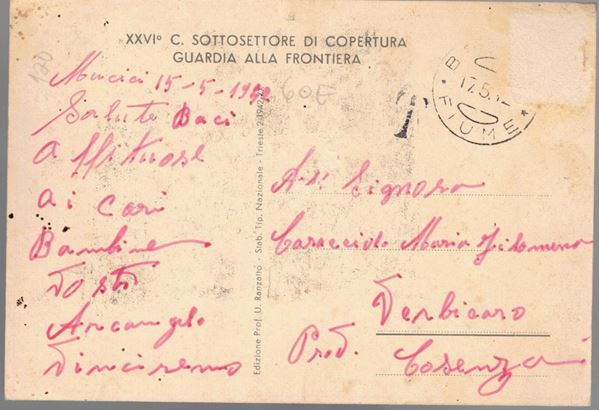 XXVIº C. SOTTOSETTORE DI COPERTURA
GUARDIA ALLA FRONTIERA
120
15-5-1942
60E
Salute Baci
Affituose
ai cari
Bambine
Vostro
Arcangelo
Vinciremo
Edizione Prof. U. Ranzatto - Stab. Tip. Nazionale - Trieste 2-1942
17.5.
* FIUME *
Signora
Maria Filomena
Verbicaro
Prov. Cosenza